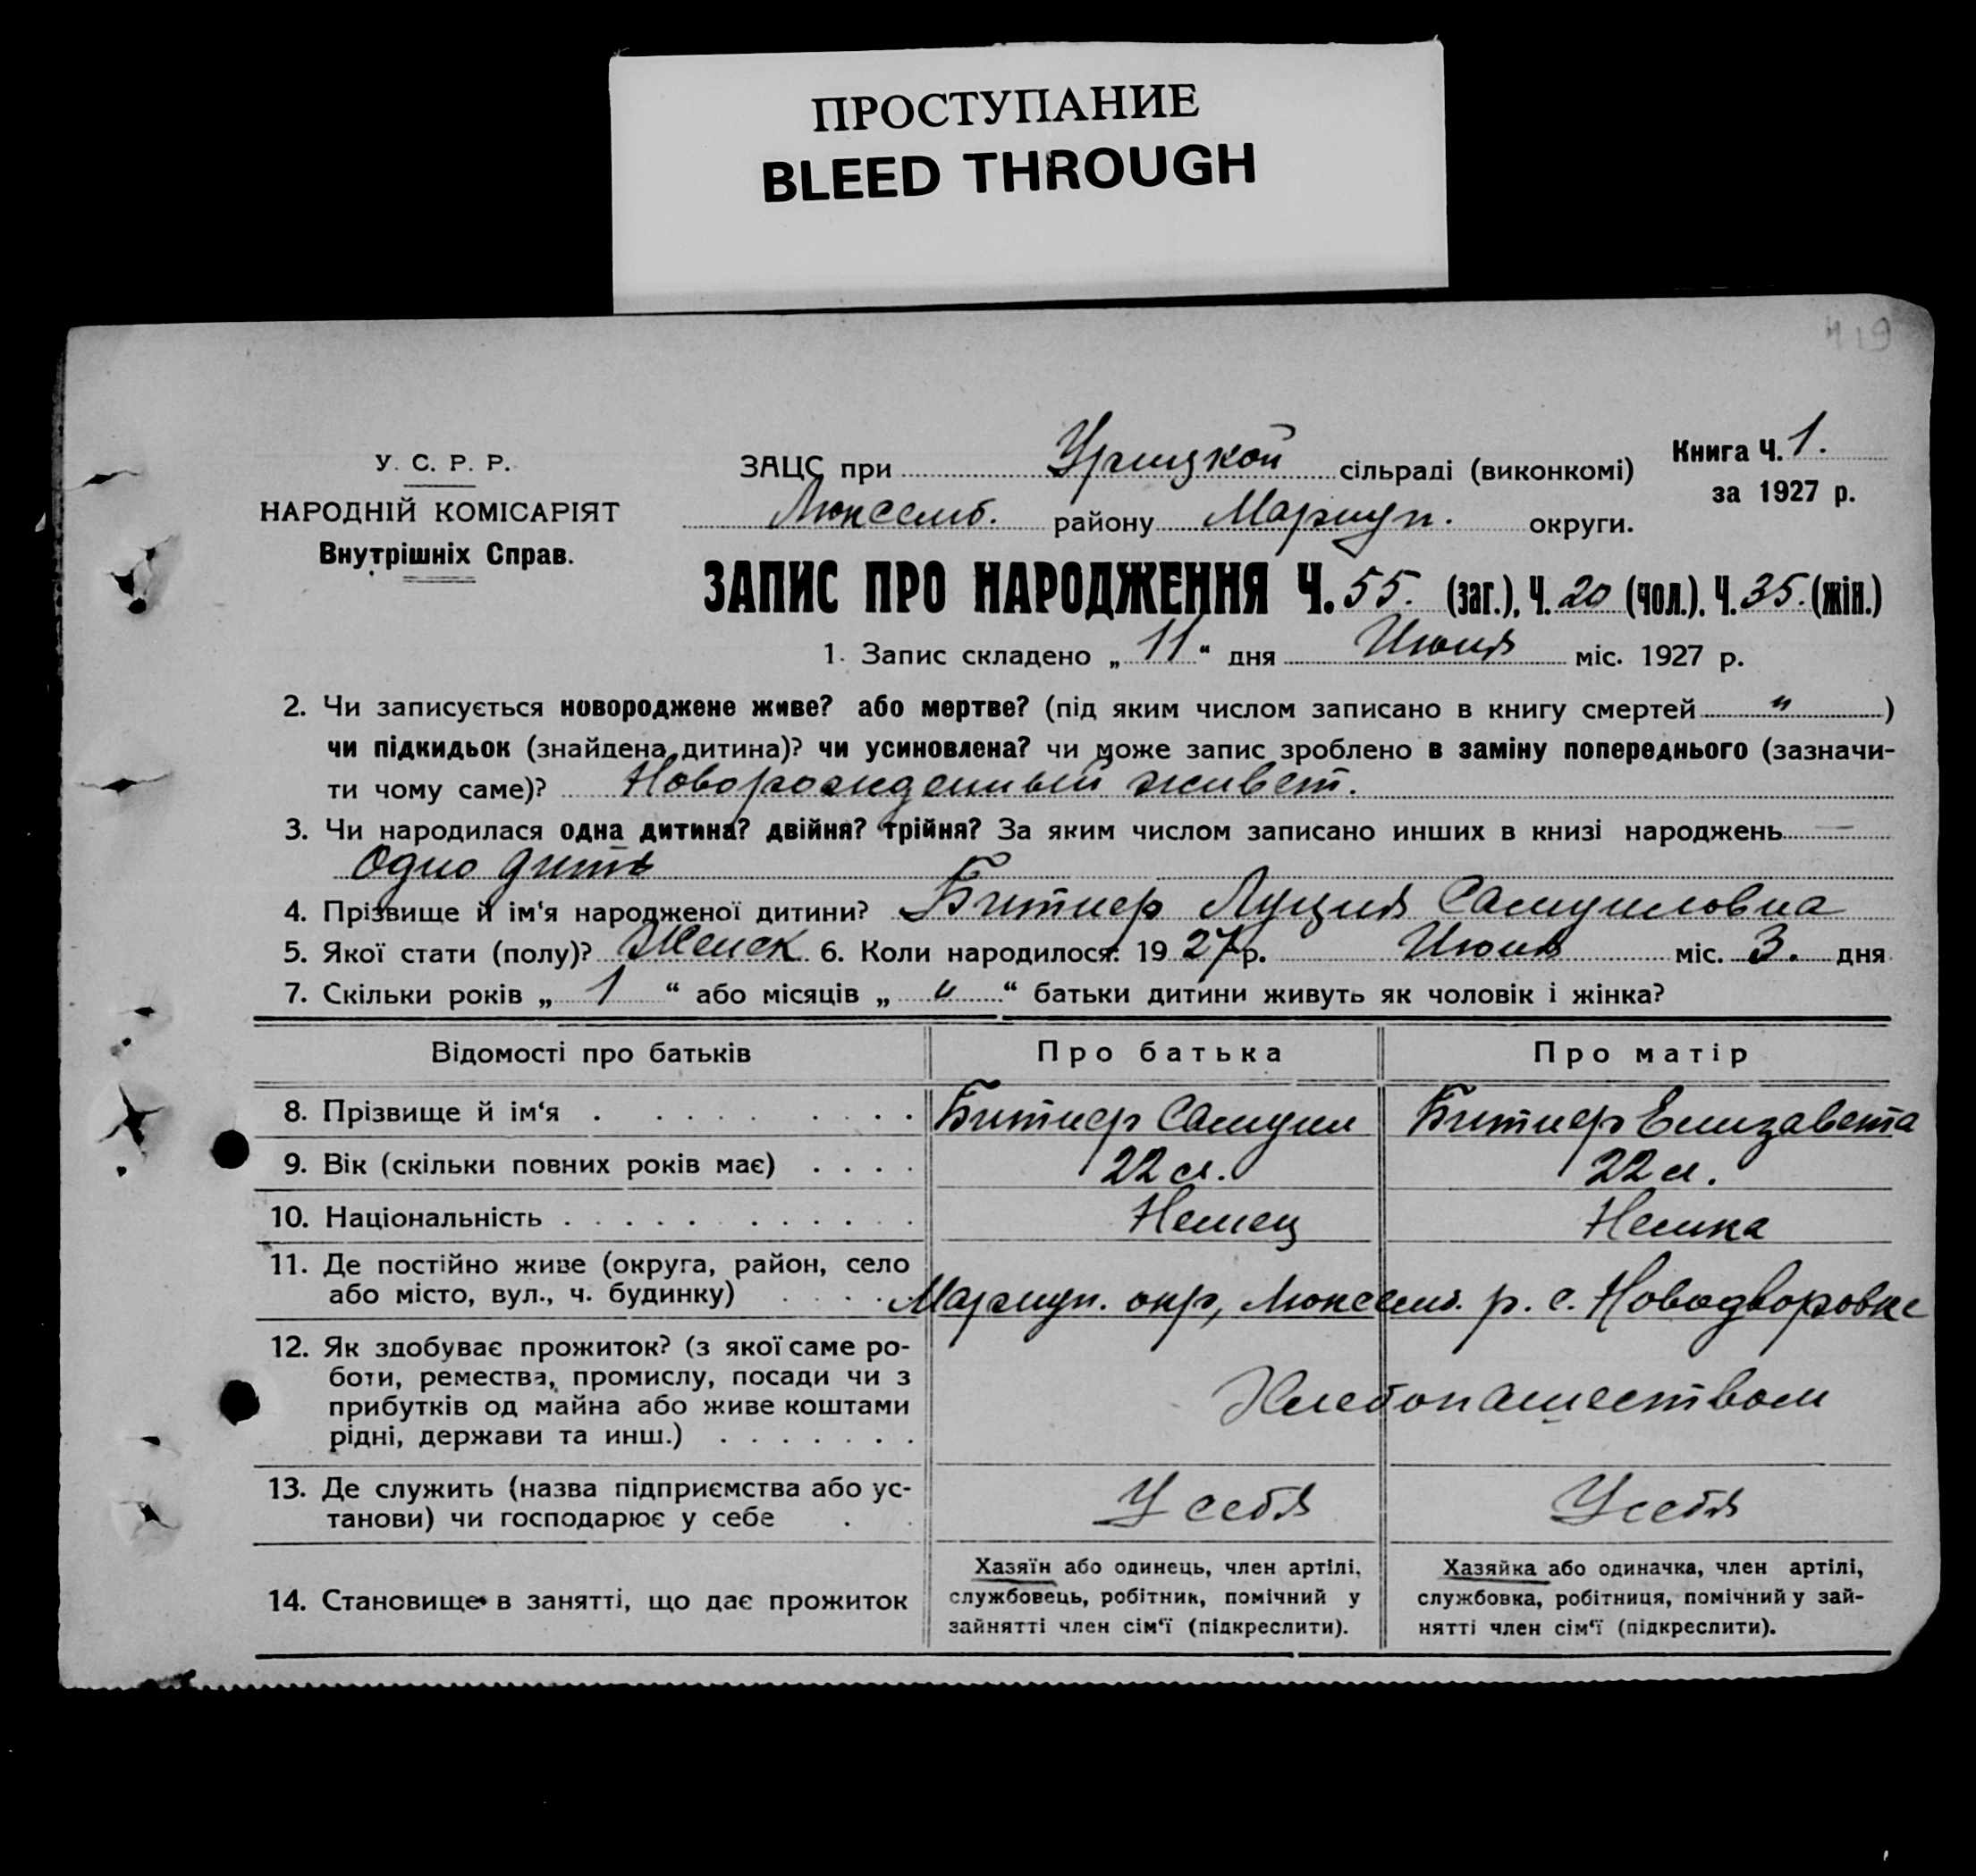 ПРОСТУПАНИЕ
BLEED THROUGH
419
У. С. Р. Р.
НАРОДНІЙ КОМІСАРІЯТ
Внутрішніх Справ.
ЗАЦС при Урицкой сільраді (виконкомі)
Книга Ч. 1.
за 1927 р.
Люксемб. району Мариуп. округи.
ЗАПИС ПРО НАРОДЖЕННЯ Ч. 55. (заг.), Ч. 20 (чол.). Ч. 35. (жін.)
1. Запис складено „ 11 “ дня Июня міс. 1927 р.
2. Чи записується новороджене живе? або мертве? (під яким числом записано в книгу смертей " )
чи підкидьок (знайдена дитина)? чи усиновлена? чи може запис зроблено в заміну попереднього (зазначи-
ти чому саме)? Новорожденный живет.
3. Чи народилася одна дитина? двійня? трійня? За яким числом записано инших в книзі народжень —
Одно дитя
4. Прізвище й ім‘я народженої дитини? Битнер Луция Самуиловна
5. Якої стати (полу)? Женск. 6. Коли народилося: 1927 р. Июня міс. 3. дня
7. Скільки років „ 1 “ або місяців „ " “ батьки дитини живуть як чоловік і жінка?
Відомості про батьків Про батька Про матір
8. Прізвище й ім‘я Битнер Самуил Битнер Елизавета
9. Вік (скільки повних років має) 22 л. 22 л.
10. Національність Немец Немка
11. Де постійно живе (округа, район, село
або місто, вул., ч. будинку) Мариуп. окр, Люксемб. р. с. Новодворовке
12. Як здобуває прожиток? (з якої саме ро-
боти, ремества, промислу, посади чи з
прибутків од майна або живе коштами
рідні, держави та инш.)
Хлебопашеством
13. Де служить (назва підприємства або ус-
танови) чи господарює у себе
У себя У себя
14. Становище в занятті, що дає прожиток
Хазяїн або одинець, член артілі,
службовець, робітник, помічний у
зайнятті член сім‘ї (підкреслити).
Хазяйка або одиначка, член артілі,
службовка, робітниця, помічний у зай-
нятті член сім‘ї (підкреслити).